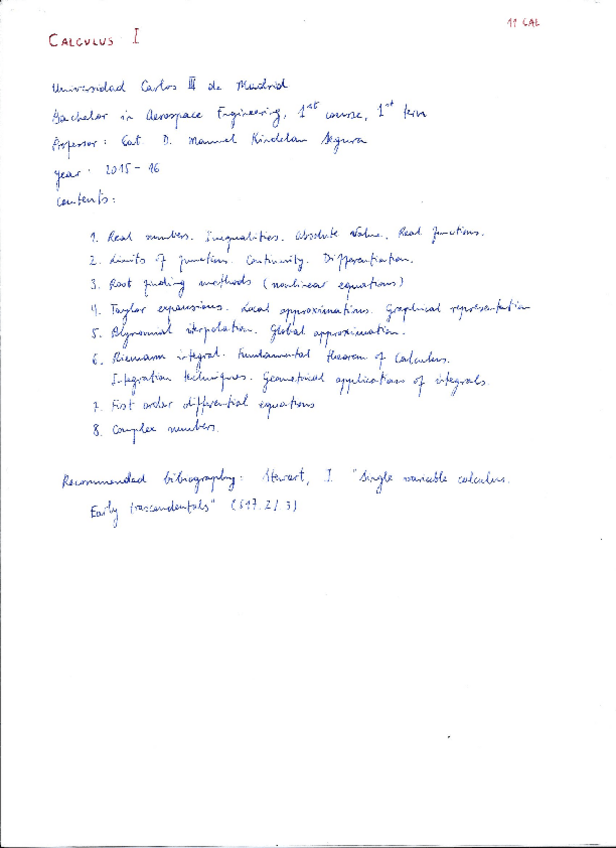 11 CAL
CALCULUS I
Universidad Carlos III de Madrid
Bachelor in Aerospace Engineering, 1st course, 1st term
Professor: Cat. D. Manuel Kindelan Segura
year: 2015-16
contents:
1. Real numbers. Inequalities. Absolute value. Real functions.
2. Limits of function. Continuity. Differentiation.
3. Root finding methods (nonlinear equations)
4. Taylor expansions. Local approximations. Graphical representation
5. Polynomial interpolation. Global approximation.
6. Riemann integral. Fundamental theorem of Calculus.
Integration techniques. Geometrical applications of integrals.
7. First order differential equations
8. Complex numbers.
Recommended bibliography: Stewart, J. "Single variable calculus.
Early trascendentals" (517.2/.3)